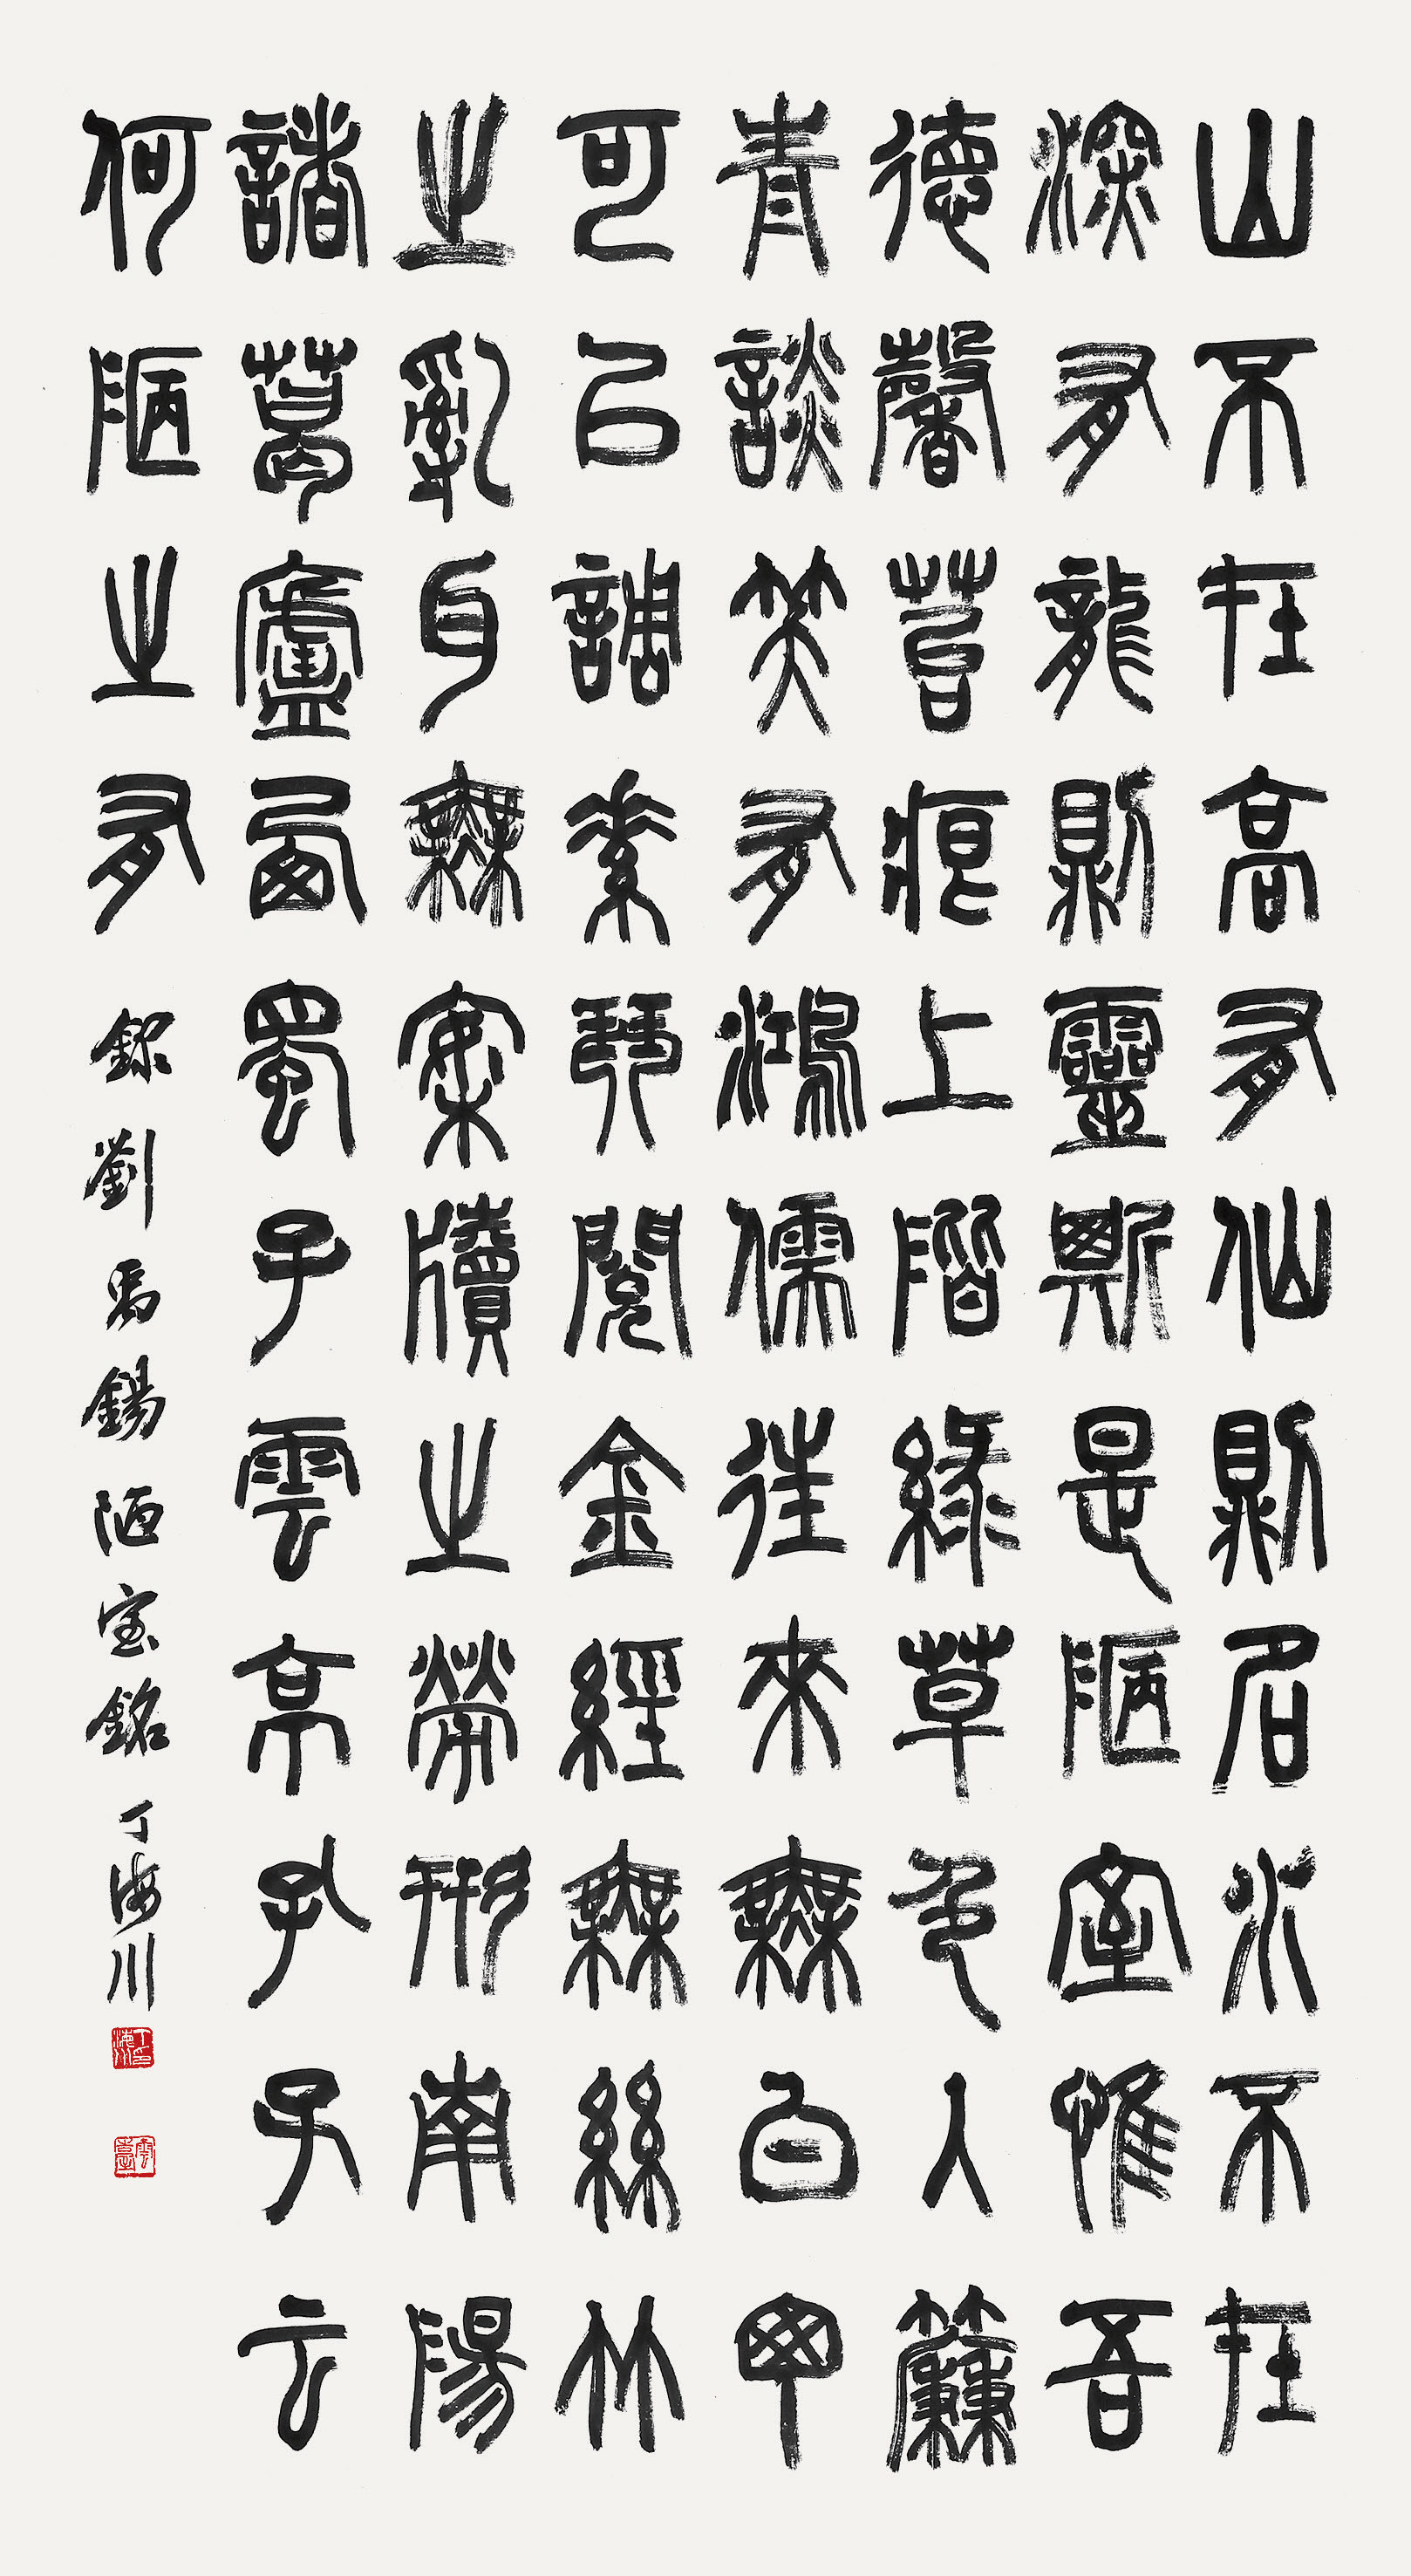 山不在高有仙則名水不在
深有龍則靈斯是陋室惟吾
德馨苔痕上階緑草色入簾
青談笑有鴻儒往來無白丁
可以調素琴閱金經無絲竹
之亂耳無案牘之勞形南陽
諸葛廬西蜀子雲亭孔子云
何陋之有 錄劉禹錫陋室銘 丁海川